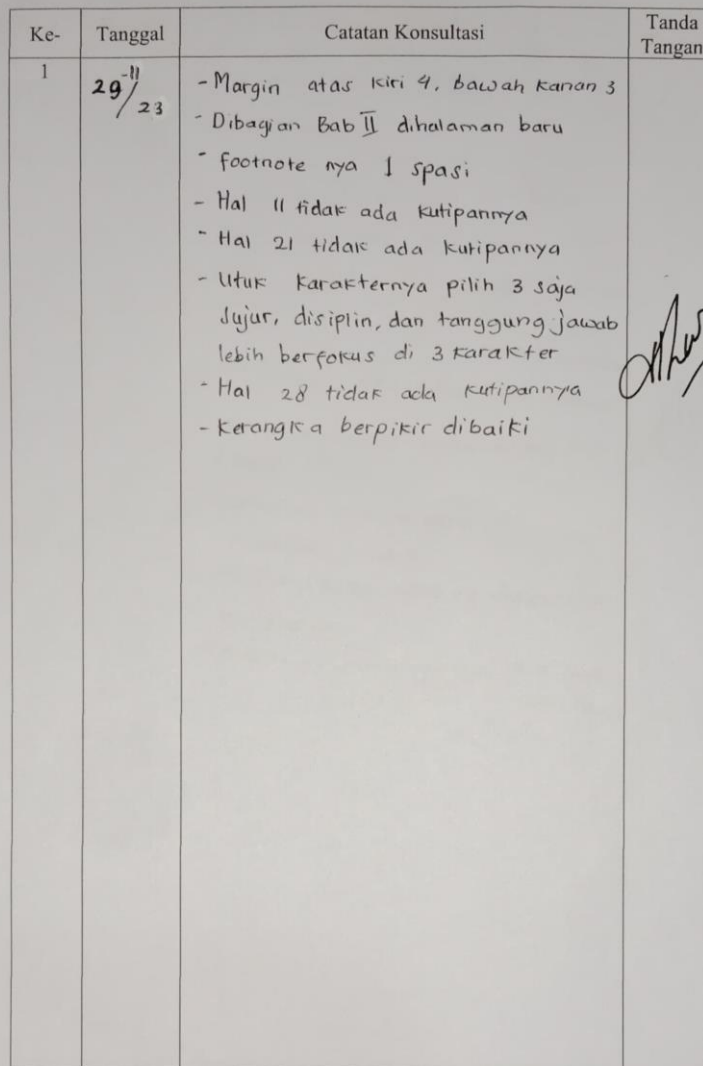 Ke- Tanggal Catatan Konsultasi Tanda Tangan
1 29-11/23
- Margin atas kiri 4, bawah kanan 3
- Dibagian Bab II dihalaman baru
- footnote nya 1 spasi
- Hal 11 tidak ada kutipannya
- Hal 21 tidak ada kutipannya
- Utuk karakternya pilih 3 saja
Jujur, disiplin, dan tanggung jawab
lebih berfokus di 3 karakter
- Hal 28 tidak ada kutipannya
- Kerangka berpikir dibaiki